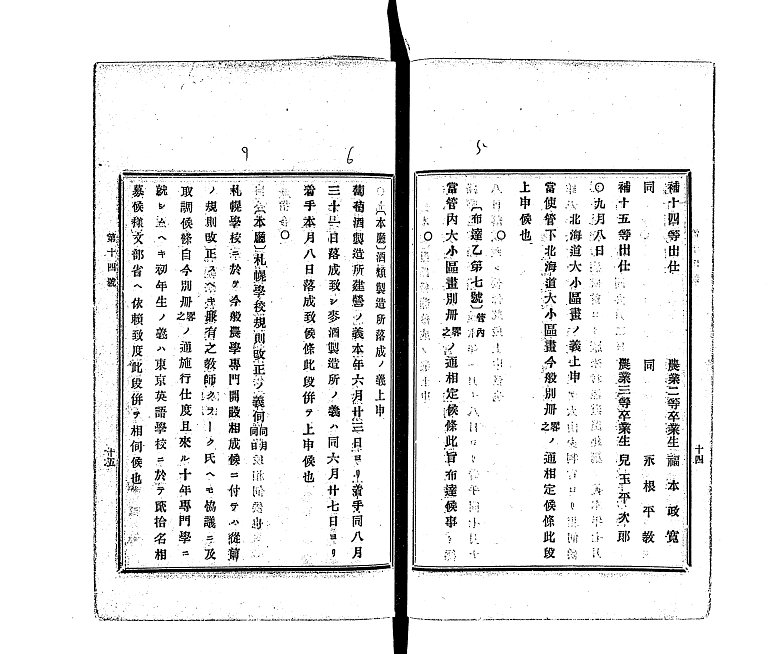 5
補十四等出仕 農業二等卒業生 福本政寬
同 同 永根平教
補十五等出仕 農業三等卒業生 兒玉平次郎
〇九月八日
北海道大小區畫ノ義上申
當使管下北海道大小區畫今般別册畧之ノ通相定候條此段
上申候也
〇
〔布達乙第七號〕管內
當管內大小區畫別册畧之ノ通相定候條此旨布達候事
〇
十四
6
9
〔本廳〕酒類製造所落成ノ義上申
葡萄酒製造所建營ノ義本年六月廿三日ヨリ着手同八月
三十一日落成致シ麥酒製造所ノ義ハ同六月廿七日ヨリ
着手本月八日落成致候條此段併テ上申候也
〇
〔本廳〕札幌學校規則改正ノ義伺
札幌學校ニ於テ今般農學專門開設相成候ニ付テハ從前
ノ規則改正雇有之教師クラーク氏ヘモ協議ニ及
取調候條自今別册畧之ノ通施行仕度且來ル十年專門學ニ
就シムヘキ初年生ノ義ハ東京英語學校ニ於テ貳拾名相
募候樣文部省ヘ依賴致度此段併テ相伺候也
第十四號
十五